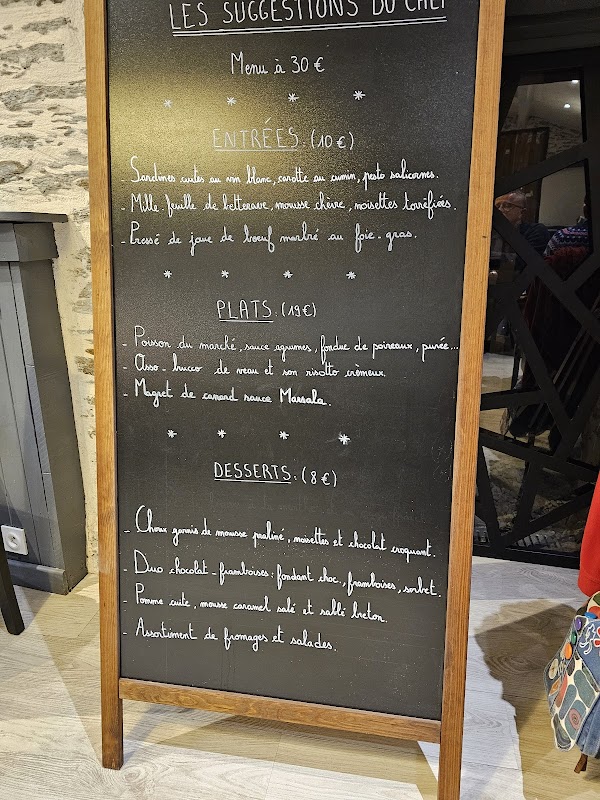 LES SUGGESTIONS DU CHEF
Menu à 30 €
* * * *
ENTRÉES. (10 €)
Sardines cuites au vin blanc, carotte au cumin, pesto salicornes.
- Mille-feuille de betterave, mousse chèvre, noisettes torréfiées.
- Pressé de joue de bœuf marbré au foie-gras.
* * * *
PLATS. (19€)
- Poisson du marché, sauce agrumes, fondue de poireaux, purée...
- Osso-bucco de veau et son risotto crémeux.
- Magret de canard sauce Marsala.
* * * *
DESSERTS. (8 €)
- Choux garnis de mousse praliné, noisettes et chocolat croquant.
- Duo chocolat-framboises: fondant choc., framboises, sorbet.
- Pomme cuite, mousse caramel salé et sablé breton.
- Assortiment de fromages et salades.